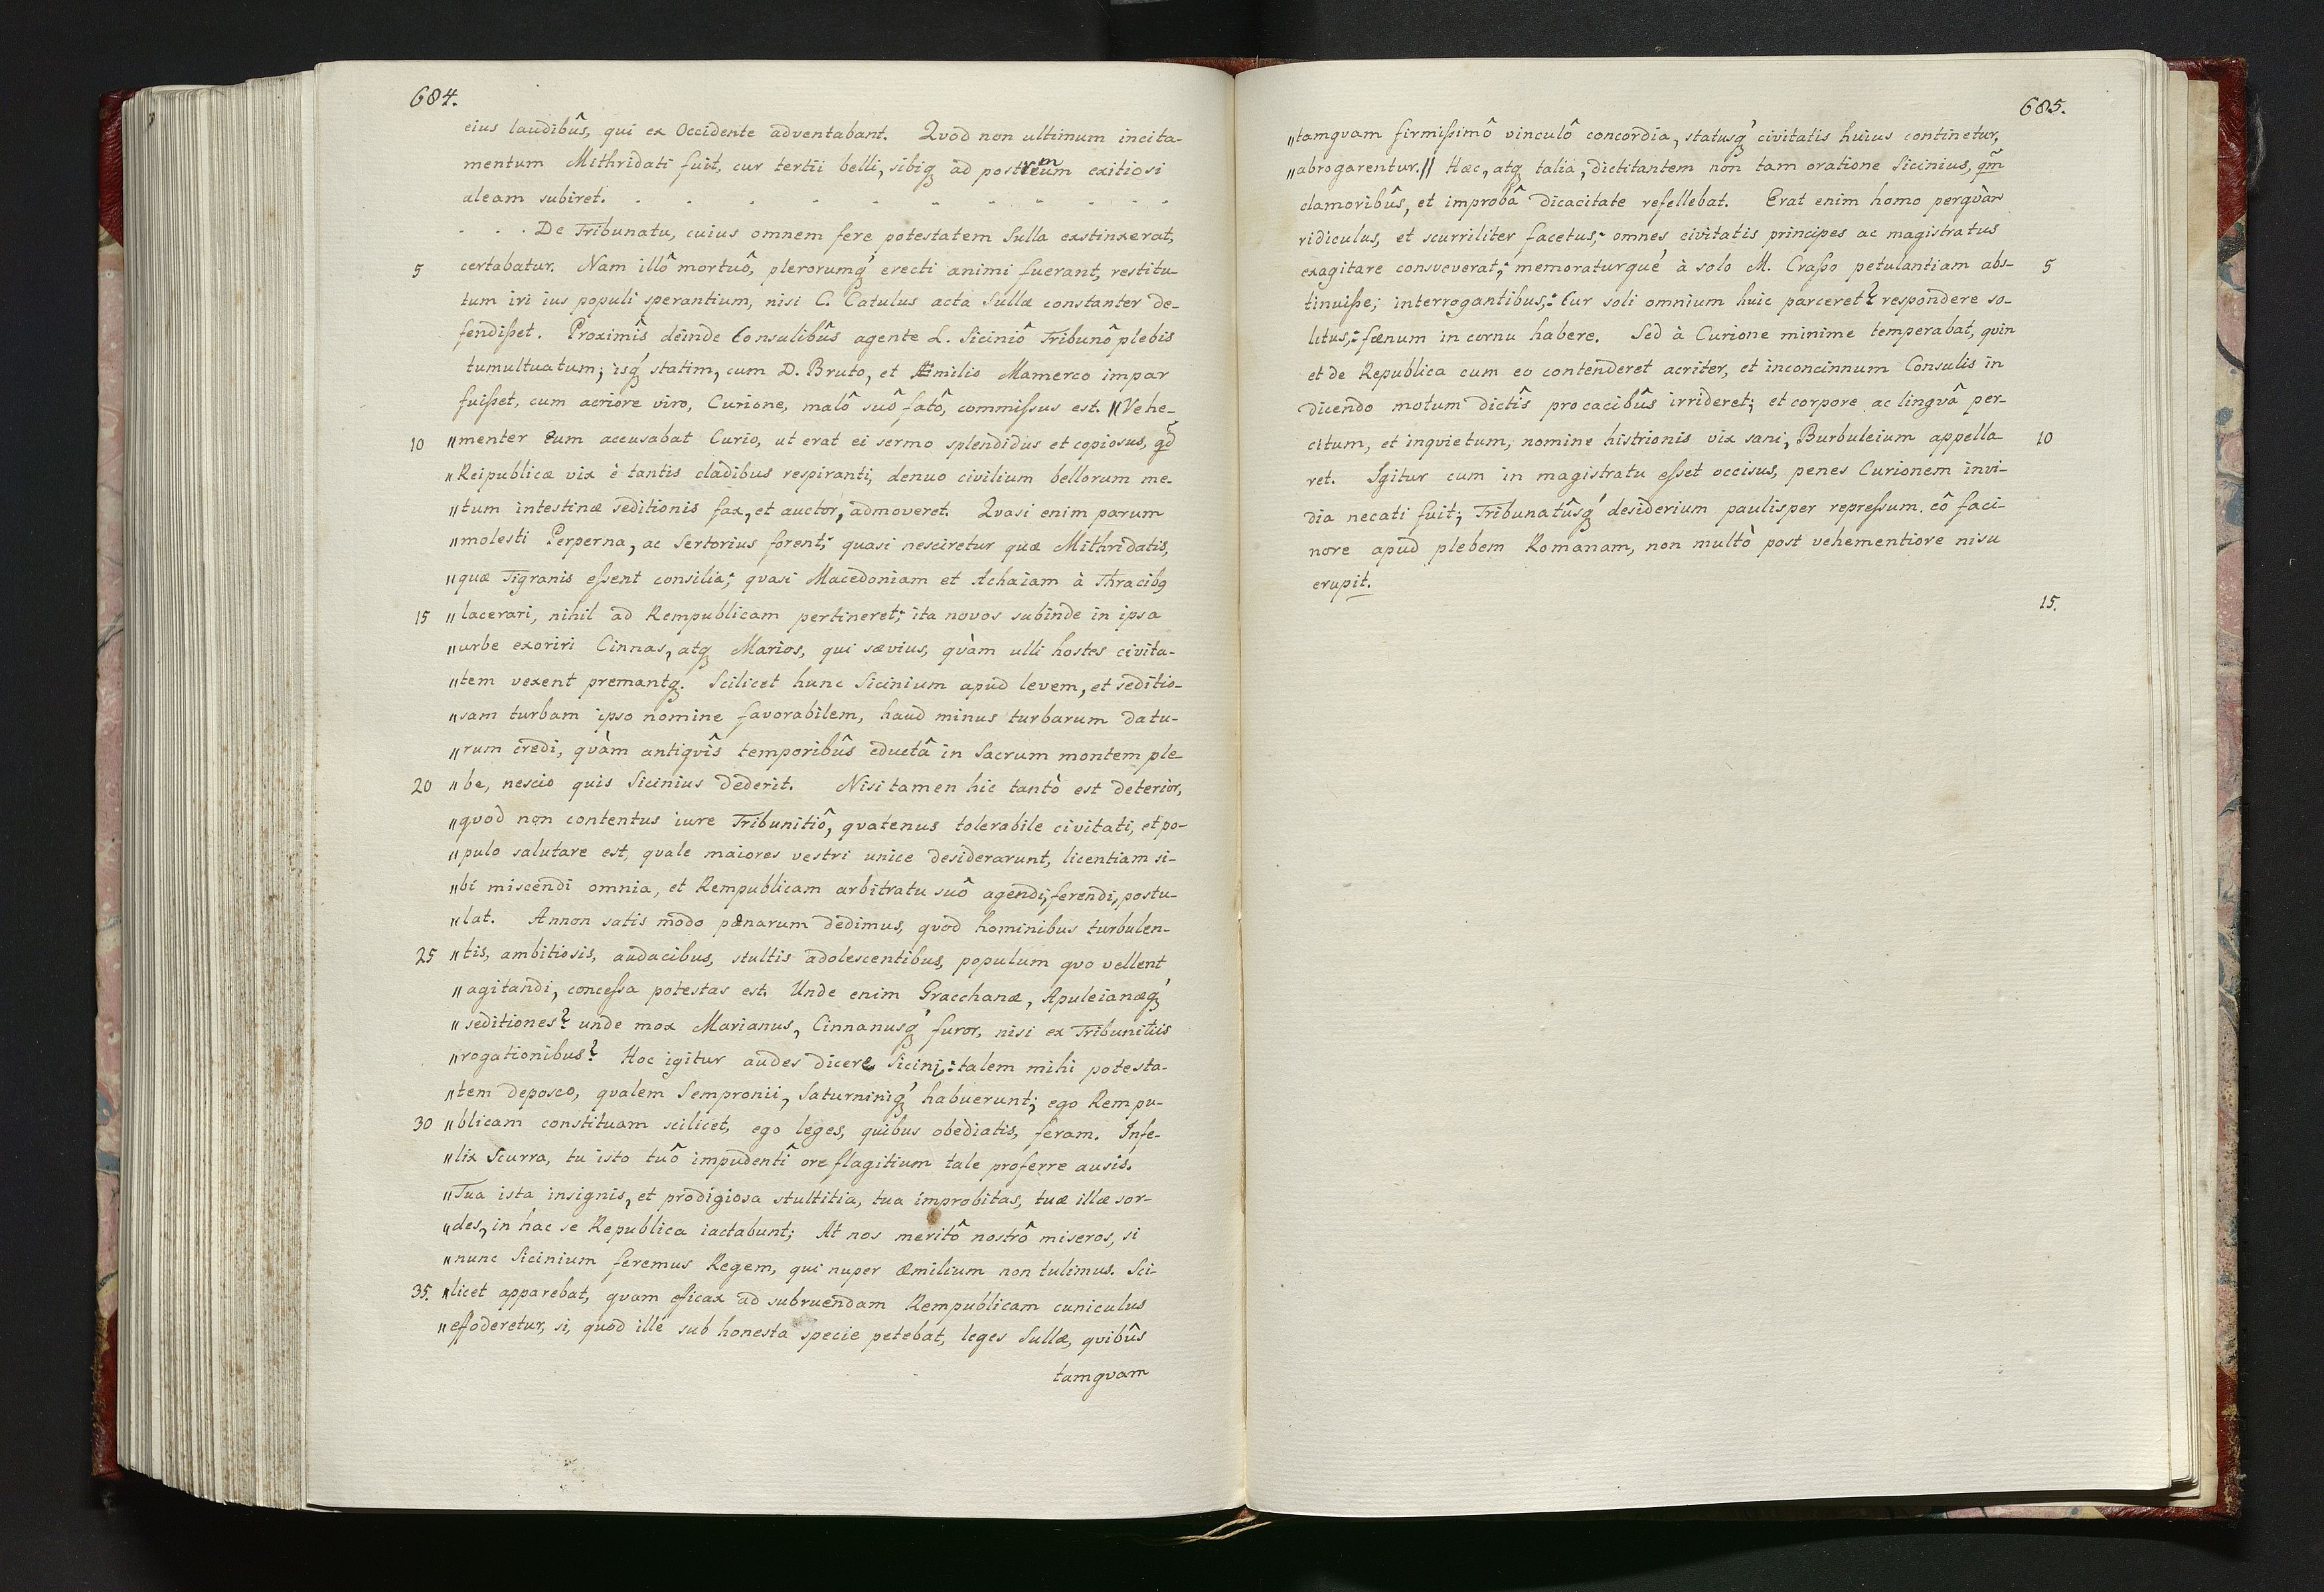 684.
eius laudibûs, qui ex Occidente adventabant. Qvod non ultimum incita-
mentum Mithridati fuit, cur tertii belli, sibiq ad postremum exitiosi
aleam subiret. . . . . . . . . . .
. . . De Tribunatu, cuius omnem fere potestatem Sulla exstinxerat,
5 certabatur. Nam illô mortuô, plerorumq́ erecti animi fuerant, restitu-
tum iri ius populi sperantium, nisi C. Catulus acta Sullæ constanter de-
fendißet. Proximîs deinde Consulibûs agente L. Siciniô Tribunô plebis
tumultuatum; isq́ statim, cum D. Bruto, et Æmilio Mamerco impar
fuißet, cum acriore viro, Curione, malô suô fatô, commißus est. "Vehe-
10 "menter eum accusabat Curio, ut erat ei sermo splendidus et copiosus, qd̃
"Reipublicæ vix è tantis cladibus respiranti, denuo civilium bellorum me-
"tum intestinæ seditionis fax, et auctor, admoveret. Qvasi enim parum
"molesti Perperna, ac Sertorius forent; quasi nesciretur quæ Mithridatis,
"quæ Tigranis eßent consilia; qvasi Macedoniam et Achaiam à Thracibq
15 "lacerari, nihil ad Rempublicam pertineret; ita novos subinde in ipsa
"urbe exoriri Cinnas, atq Marios, qui sævius, qvàm ulli hostes civita-
"tem vexent premantq. Scilicet hunc Sicinium apud levem, et seditio-
"sam turbam ipso nomine favorabilem, haud minus turbarum datu-
"rum credi, qvàm antiqvîs temporibûs eductâ in Sacrum montem ple
20 "be, nescio quis Sicinius dederit. Nisi tamen hic tantò est deterior,
"qvod non contentus iure Tribunitiô, qvatenus tolerabile civitati, et po-
"pulo salutare est, quale maiores vestri unice desiderarunt, licentiam si-
"bi miscendi omnia, et Rempublicam arbitratu suô agendi, ferendi, postu-
"lat. Annon satis modo pœnarum dedimus, qvod hominibus turbulen-
25 "tis, ambitiosis, audacibus, stultis adolescentibus, populum qvo vellent
"agitandi, conceßa potestas est. Unde enim Gracchanæ, Apuleianæq́
"seditiones? unde mox Marianus, Cinnanusq́ furor, nisi ex Tribunitiis
"rogationibus? Hoc igitur audes dicere Sicini: talem mihi potesta-
"tem deposco, qvalem Sempronii, Saturniniq́ habuerunt; ego Rempu-
30 "blicam constituam scilicet, ego leges, quibus obediatis, feram. Infe-
"lix Scurra, tu isto tuô impudentî ore flagitium tale proferre ausis.
"Tua ista insignis, et prodigiosa stultitia, tua improbitas, tuæ illæ sor-
"des, in hac se Republica iactabunt; At nos meritô nostrô miseros, si
"nunc Sicinium feremus Regem, qui nuper Æmilium non tulimus. Sci-
35. "licet apparebat, qvam efficax ad subruendam Rempublicam cuniculus
"effoderetur, si, quod ille sub honesta specie petebat, leges Sullæ, qvibûs
tamqvam
685.
"tamqvam firmißimô vinculô concordia, statusq́ civitatis huius continetur,
"abrogarentur." Hæc, atq talia, dictitantem non tam oratione Sicinius, qm̃
clamoribûs, et improbâ dicacitate refellebat. Erat enim homo perqvàm
ridiculus, et scurriliter facetus; omnes civitatis principes ac magistratus
exagitare consveverat; memoraturque à solo M. Craßo petulantiam abs- 5
tinuiße; interrogantibus: Cur soli omnium huic parceret? respondere so-
litus: fœnum in cornu habere. Sed à Curione minime temperabat, qvin
et de Republica cum eo contenderet acriter, et inconcinnum Consulis in
dicendo motum dictîs procacibûs irrideret; et corpore ac lingvâ per-
citum, et inqvietum, nomine histrionis vix sani, Burbuleium appella 10
ret. Igitur cum in magistratu eßet occisus, penes Curionem invi-
dia necati fuit; Tribunatûsq́ desiderium paulisper repreßum eô faci-
nore apud plebem Romanam, non multò post vehementiore nisu
erupit.
15.